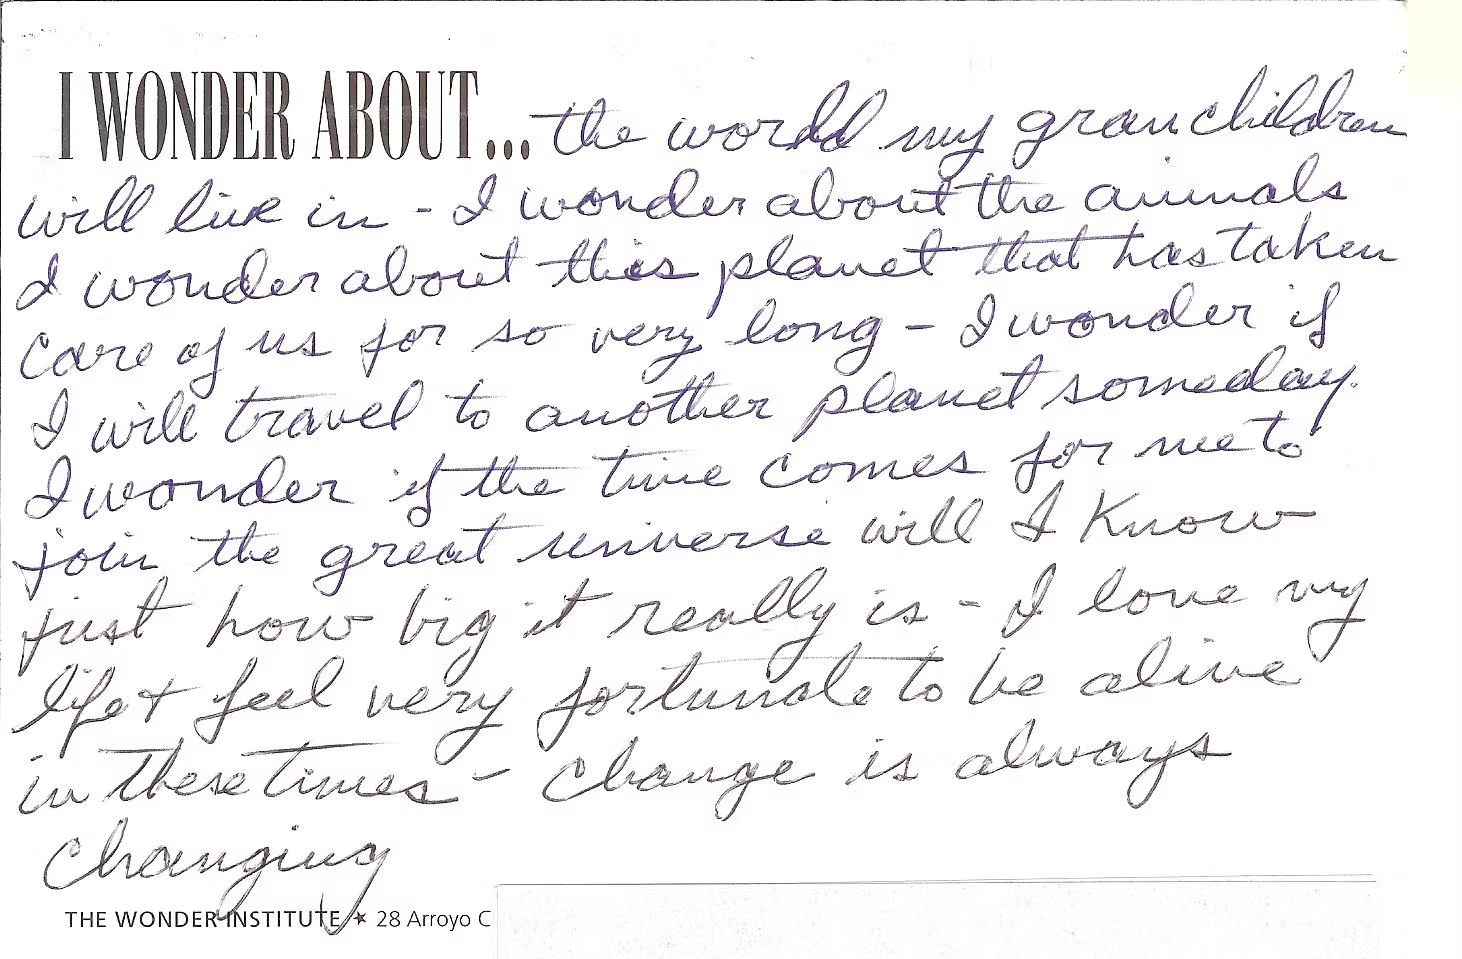 I WONDER ABOUT... the world my granchildren
will live in - I wonder about the animals
I wonder about this planet that has taken
care of us for so very long - I wonder if
I will travel to another planet someday.
I wonder if the time comes for me to
join the great universe will I know
just how big it really is - I love my
life + feel very fortunate to be alive
in these times - change is always
changing
THE WONDER INSTITUTE ★ 28 Arroyo C